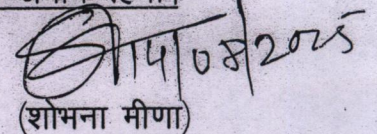 14/08/2025
(शोभना मीणा)